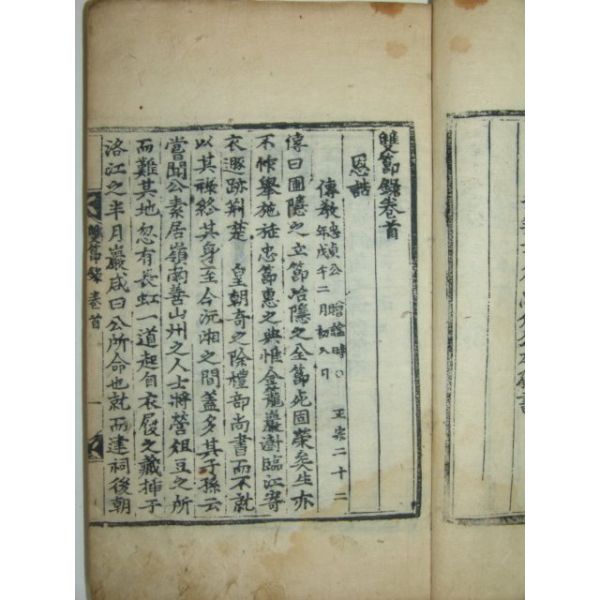 雙節錄卷首
恩誥
傳教忠貞公　贈諡時○　正宗二十二
年戊午二月初八日
傳曰圃隱之立節冶隱之全節死固榮矣生亦
不怍舉施旌忠節惠之典惟金籠巖澍臨江寄
衣遯跡荊楚　皇朝奇之除禮部尚書而不就
以其祿終其身至今沅湘之間蓋多其子孫云
嘗聞公素居嶺南善山州之人士將營俎豆之所
而難其地忽有長虹一道起自衣履之藏揷于
洛江之半月巖咸曰公所命也就而建祠後朝
雙節錄　卷首　一